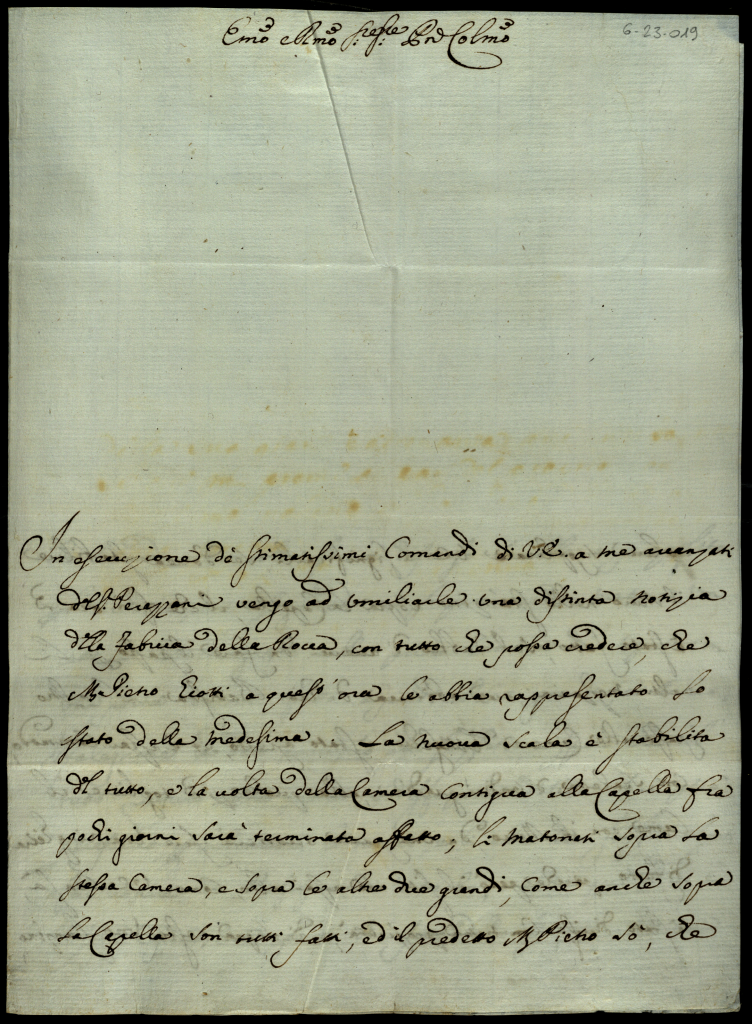 6-23-019
Emo e Rmo Sig.re Sig.re Pñ Colmo
In esecuzione dè stimatissimi Comandi di V.E. a me avanzati
dal S. Perezzani vengo ad umiliarle una distinta notizia
dlla Fabrica della Rocca, con tutto che possa credere, che
Mr Pietro Ecotti a quest' ora le abbia rappresentato lo
stato della medesima. La nuova scala è stabilita
dl tutto, e la volta della Camera contigua alla Capella fra
pochi giorni sarà terminata affatto; li matonati sopra la
stessa Camera, e sopra le altre due grandi, come anche sopra
la Capella son tutti fatti, ed il predetto Mr Pietro sò, che